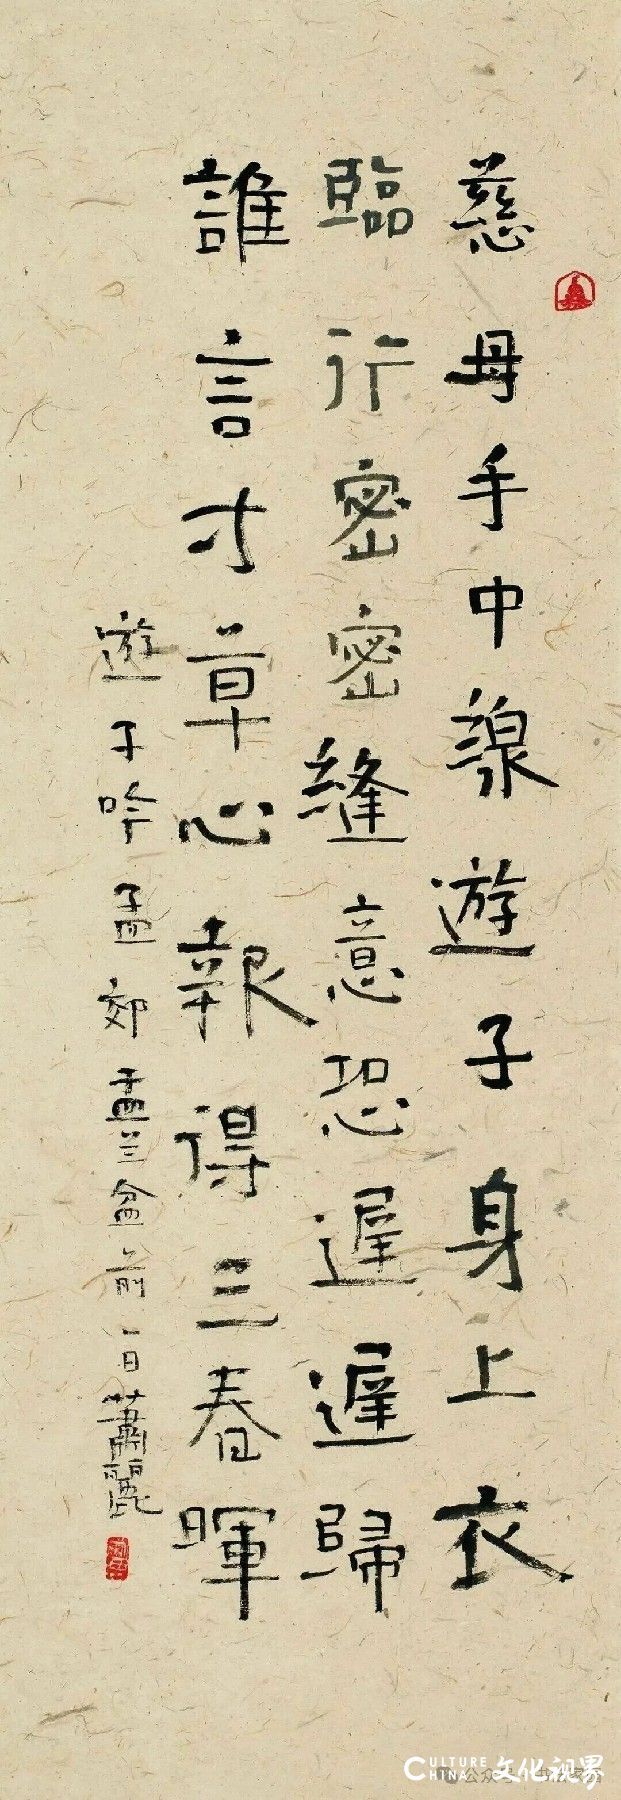 慈母手中線遊子身上衣
臨行密密縫意恐遲遲歸
誰言寸草心報得三春暉
遊子吟孟郊盂兰盆前一日蕭麗
公众号
CULTURE
CHINA 文化视界